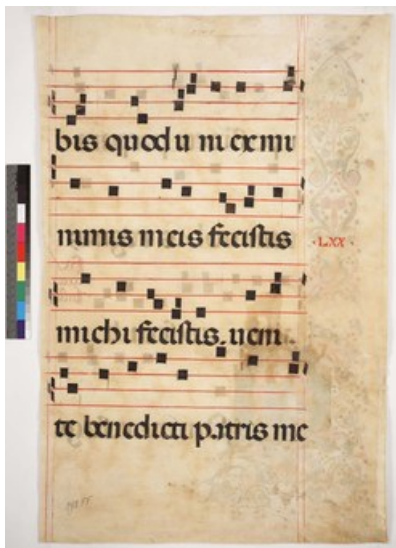 bis quod u ni ex mi
nimis meis fecistis
·LXX·
michi fecistis. ueni
te benedicti patris me